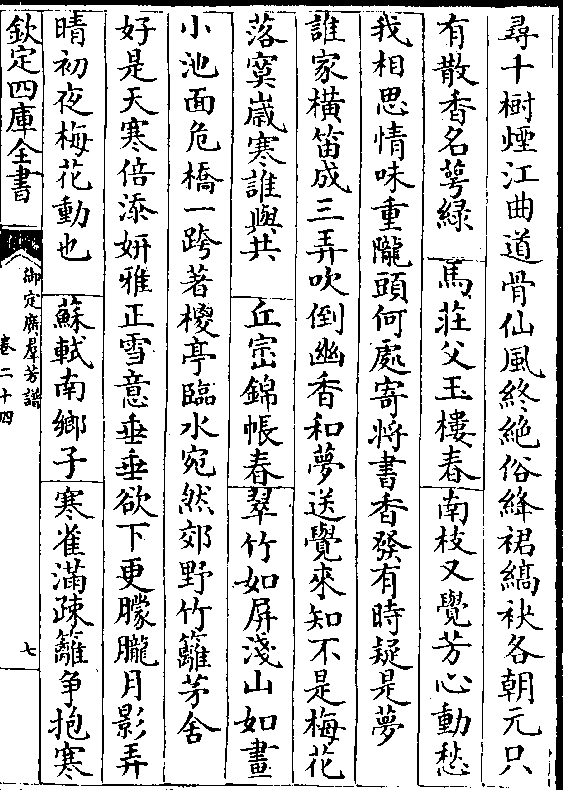 尋十樹煙江曲道骨仙風終絶俗絳裙縞袂各朝元只
有散香名蕚緑　馬莊父玉樓春　南枝又覺芳心動愁
我相思情味重隴頭何處寄將書香發有時疑是夢
誰家横笛成三弄吹倒幽香和夢送覺來知不是梅花
落寞嵗寒誰與共　丘崈錦帳春　翠竹如屏淺山如畫
小池面危橋一跨著椶亭臨水宛然郊野竹籬茅舍
好是天寒倍添妍雅正雪意垂垂欲下更朦朧月影弄
晴初夜梅花動也　蘇軾南鄉子　寒雀滿疎籬爭抱寒
欽定四庫全書
御定廣羣芳譜
卷二十四
七